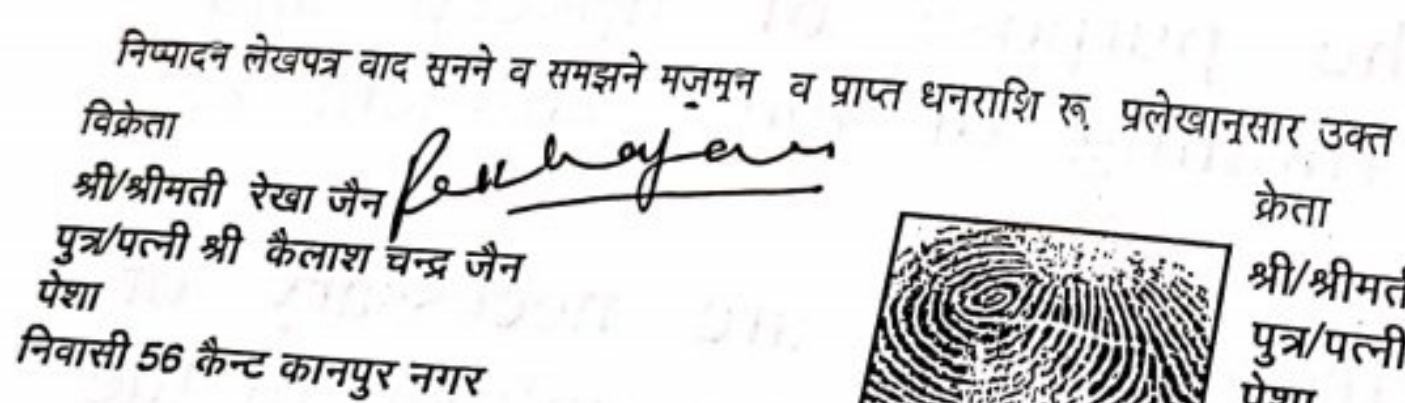 निष्पादन लेखपत्र वाद सुनने व समझने मजमून व प्राप्त धनराशि रू प्रलेखानुसार उक्त
विक्रेता
श्री/श्रीमती रेखा जैन
पुत्र/पत्नी श्री कैलाश चन्द्र जैन
पेशा
निवासी 56 कैन्ट कानपुर नगर
क्रेता
श्री/श्रीमती
पुत्र/पत्नी
पेशा